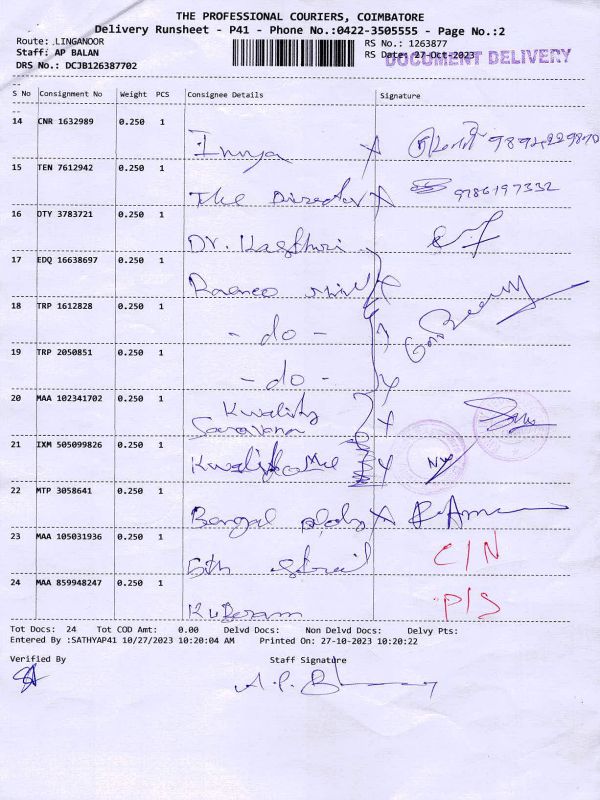 THE PROFESSIONAL COURIERS, COIMBATORE
Delivery Runsheet - P41 - Phone No.:0422-3505555 - Page No.:2
Route: LINGANOOR
RS No.: 1263877
Staff: AP BALAN
RS Date: 27-Oct-2023
DOCUMENT DELIVERY
DRS No.: DCJB126387702
S No Consignment No Weight PCS Consignee Details Signature
14 CNR 1632989 0.250 1
15 TEN 7612942 0.250 1 The Director 9786197332
16 DTY 3783721 0.250 1 Dr. Kasthuri
17 EDQ 16638697 0.250 1
18 TRP 1612828 0.250 1 - do -
19 TRP 2050851 0.250 1 - do -
20 MAA 102341702 0.250 1 Kwality
Saravana
21 IXM 505099826 0.250 1
22 MTP 3058641 0.250 1
23 MAA 105031936 0.250 1 C/N
24 MAA 859948247 0.250 1 P/S
Tot Docs: 24 Tot COD Amt: 0.00 Delvd Docs: Non Delvd Docs: Delvy Pts:
Entered By :SATHYAP41 10/27/2023 10:20:04 AM Printed On: 27-10-2023 10:20:22
Verified By Staff Signature